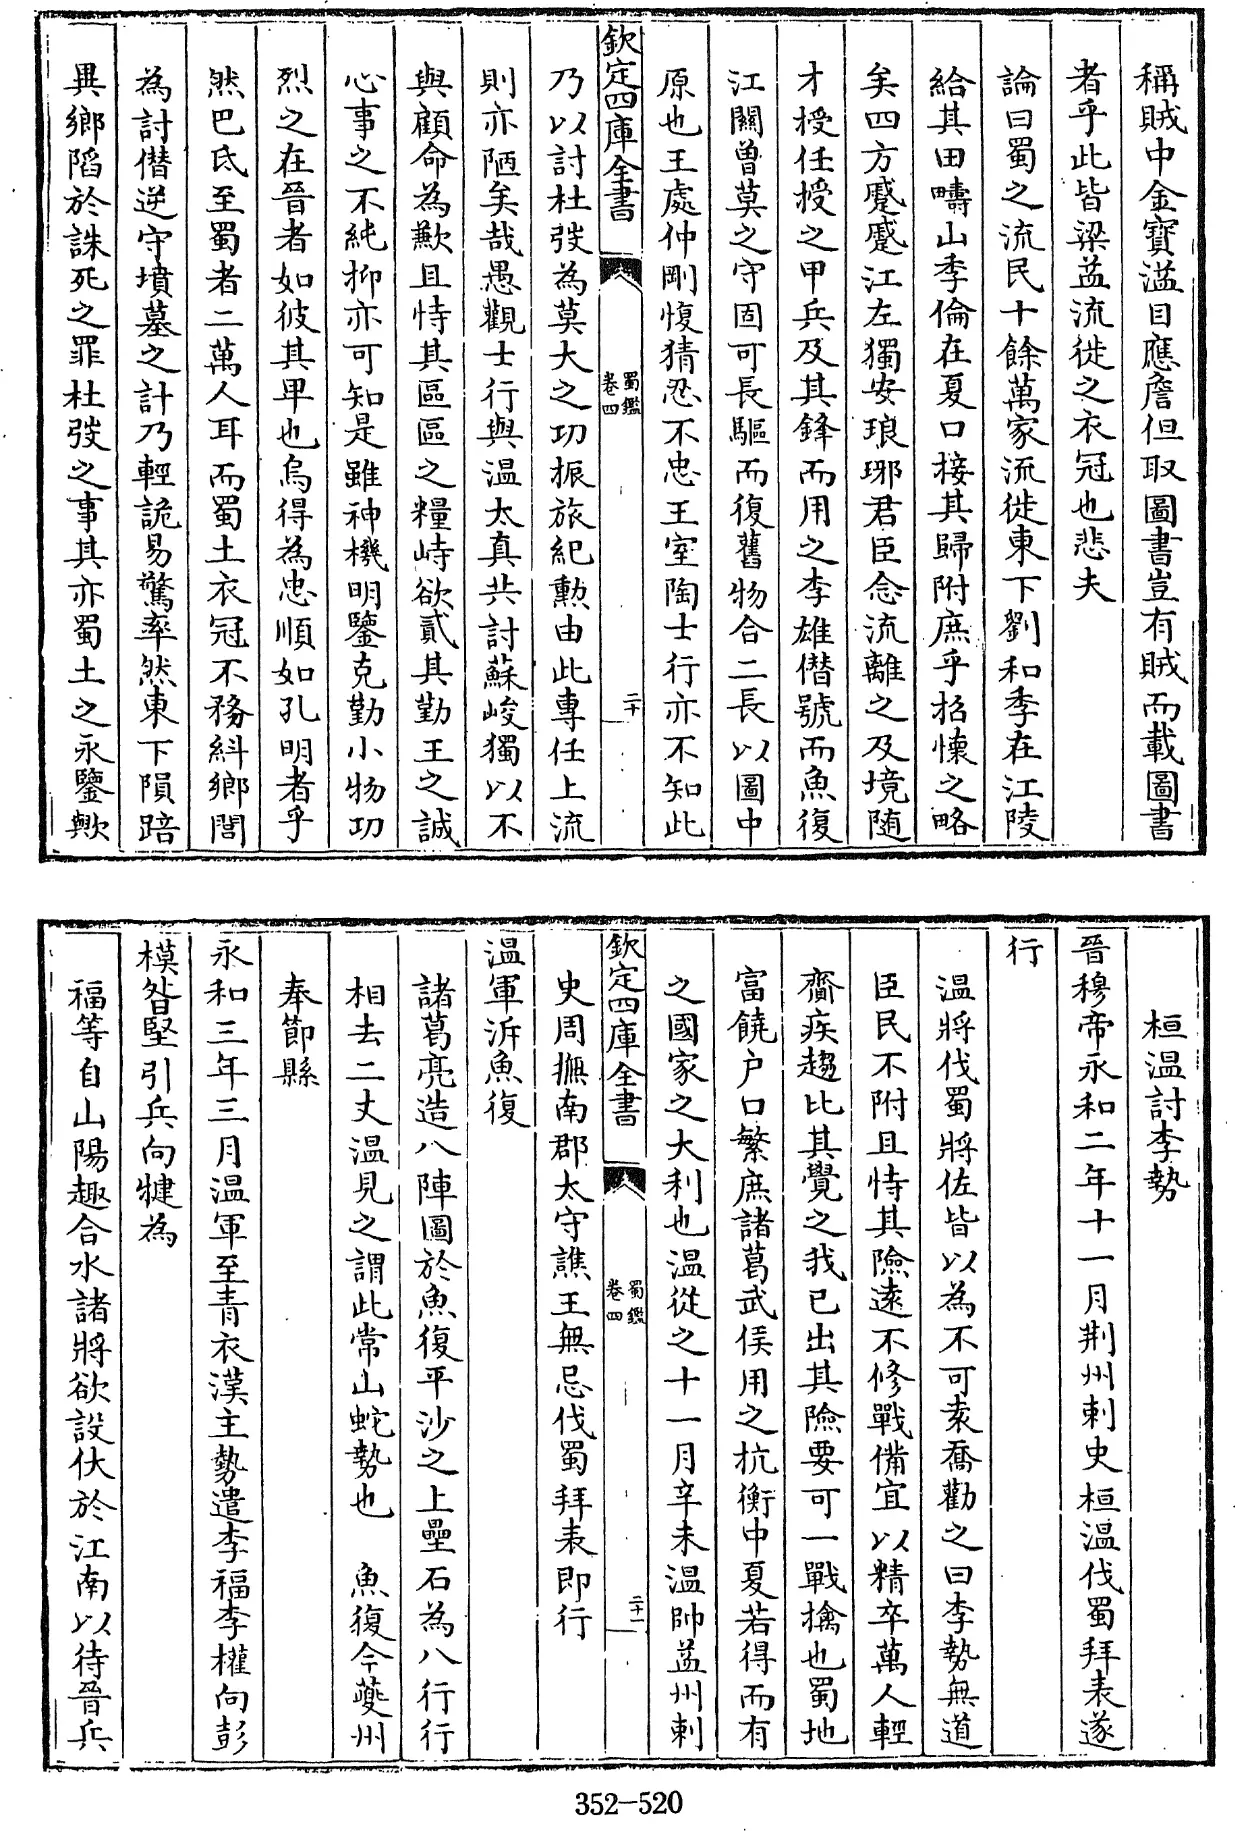 稱賊中金寶溢目應詹但取圖書豈有賊而載圖書
者乎此皆梁益流徙之衣冠也悲夫
論曰蜀之流民十餘萬家流徙東下劉和季在江陵
給其田疇山季倫在夏口接其歸附庶乎招懷之略
矣四方蹙蹙江左獨安琅琊君臣念流離之及境随
才授任授之甲兵及其鋒而用之李雄僭號而魚復
江關曾莫之守固可長驅而復舊物合二長以圖中
原也王處仲剛愎猜忍不忠王室陶士行亦不知此
欽定四庫全書
蜀鑑
卷四
二十
乃以討杜弢為莫大之功振旅紀勲由此專任上流
則亦陋矣哉愚觀士行與温太真共討蘇峻獨以不
與顧命為歉且恃其區區之糧峙欲貳其勤王之誠
心事之不純抑亦可知是雖神機明鑒克勤小物功
烈之在晉者如彼其卑也烏得為忠順如孔明者乎
然巴氐至蜀者二萬人耳而蜀土衣冠不務糾鄉閭
為討僭逆守墳墓之計乃輕詭易驚率然東下隕踣
異鄉陷於誅死之罪杜弢之事其亦蜀土之永鑒歟
桓温討李勢
晉穆帝永和二年十一月荆州刺史桓温伐蜀拜表遂
行
温將伐蜀將佐皆以為不可袁喬勸之曰李勢無道
臣民不附且恃其險遠不修戰備宜以精卒萬人輕
齎疾趨比其覺之我已出其險要可一戰擒也蜀地
富饒户口繁庶諸葛武侯用之抗衡中夏若得而有
之國家之大利也温從之十一月辛未温帥益州刺
欽定四庫全書
蜀鑑
卷四
二十一
史周撫南郡太守譙王無忌伐蜀拜表即行
温軍泝魚復
諸葛亮造八陣圖於魚復平沙之上壘石為八行行
相去二丈温見之謂此常山蛇勢也 魚復今夔州
奉節縣
永和三年三月温軍至青衣漢主勢遣李福李權向彭
模昝堅引兵向犍為
福等自山陽趣合水諸將欲設伏於江南以待晉兵
352-520